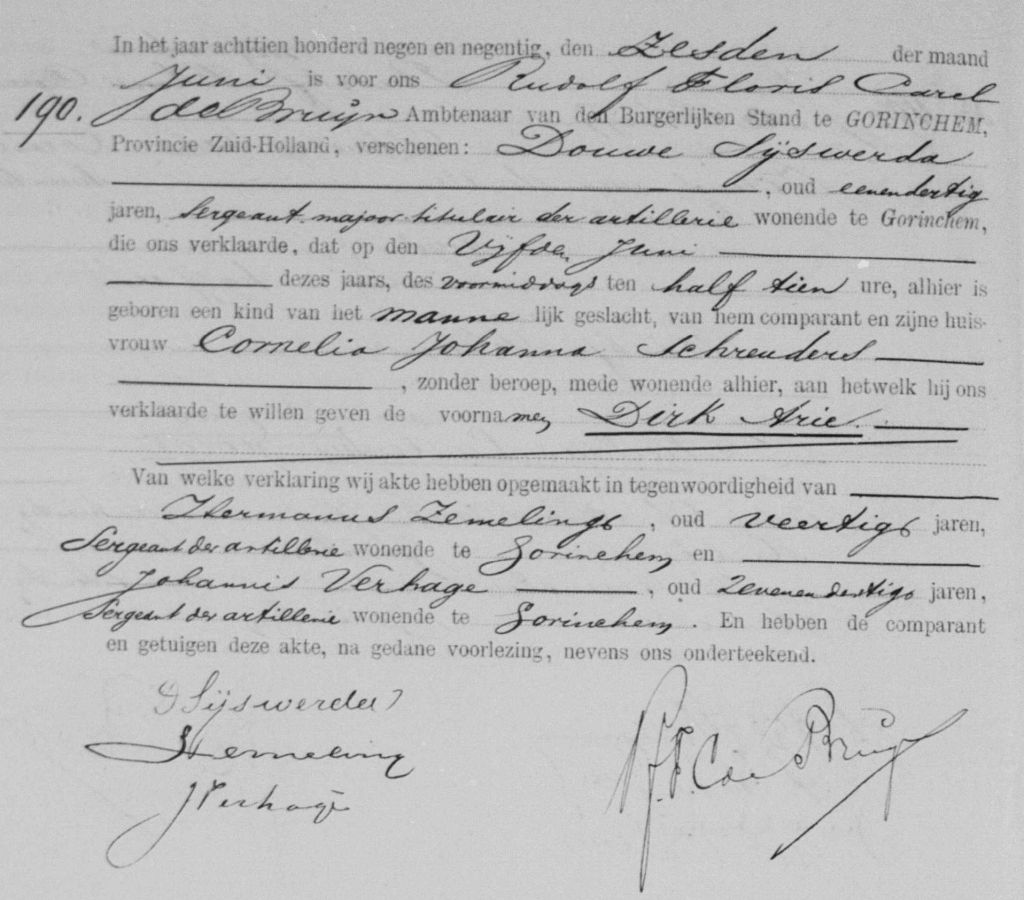 In het jaar achttien honderd negen en negentig, den Zesden der maand
Juni is voor ons Rudolf Floris Carel
190. de Bruijn Ambtenaar van den Burgerlijken Stand te GORINCHEM,
Provincie Zuid-Holland, verschenen: Douwe Sijswerda
, oud eenendertig
jaren, Sergeant-majoor titulair der artillerie wonende te Gorinchem,
die ons verklaarde, dat op den Vijfden Juni
dezes jaars, des voormiddags ten half tien ure, alhier is
geboren een kind van het manne lijk geslacht, van hem comparant en zijne huis-
vrouw Cornelia Johanna Schreuders
, zonder beroep, mede wonende alhier, aan hetwelk hij ons
verklaarde te willen geven de voornamen Dirk Arie.
Van welke verklaring wij akte hebben opgemaakt in tegenwoordigheid van
Hermanus Zemeling, oud veertig jaren,
Sergeant der artillerie wonende te Gorinchem en
Johannis Verhage, oud zevenendertig jaren,
Sergeant der artillerie wonende te Gorinchem. En hebben de comparant
en getuigen deze akte, na gedane voorlezing, nevens ons onderteekend.
D Sijswerda
HZemeling
J Verhage
R.F.C. de Bruijn